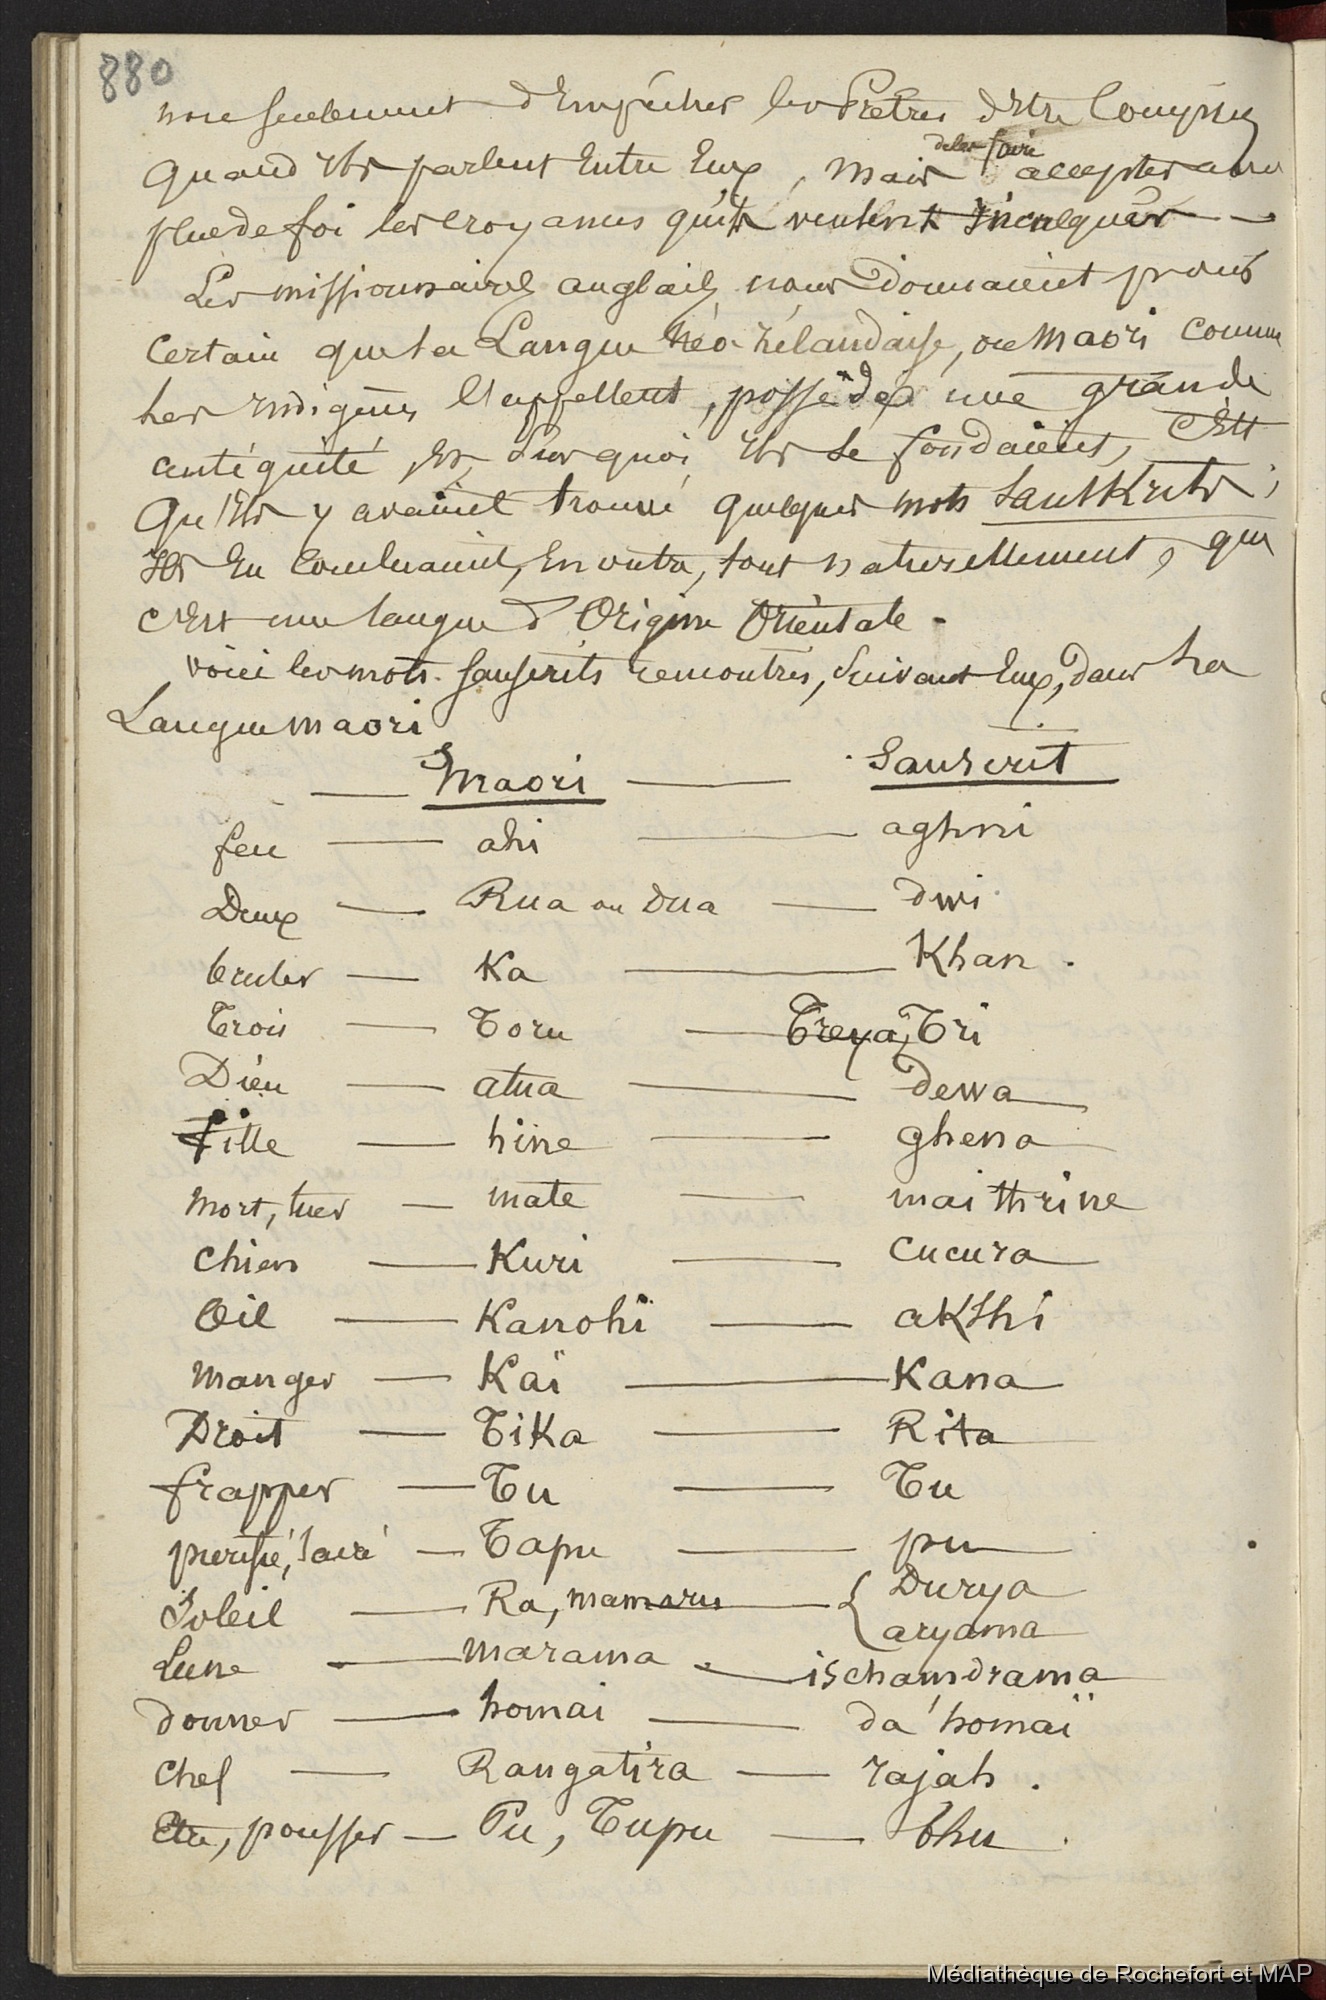 880
non seulement d'Empêcher les Prêtres d'Etre Compris
quand ils parlent Entre Eux, mais de les faire accepter avec
plus de foi les croyances qu'ils veulent inculquer —
Les missionnaires anglais nous donnaient pour
certain que la Langue Néo-Zélandaise, ou Maori comme
les indigènes l'appellent, possède une grande
antiquité, Et, Sur quoi ils se fondaient, C'Est
qu'ils y avaient trouvé quelques mots Sanskrits ;
ils En concluaient, En outre, tout naturellement, que
c'Est une langue d'Origine Orientale.
voici les mots sanscrits rencontrés, Suivant Eux, dans La
Langue maori
— Maori — Sanscrit
feu — ahi — aghni
Deux — Rua ou Dua — dwi
bruler — Ka — Khan.
Trois — Toru — Treya, Tri
Dieu — atua — dewa
fille — hine — ghena
Mort, tuer — mate — maithrine
Chien — Kuri — cucura
Oeil — Kanohi — akshi
Manger — Kaï — Kana
Droit — Tika — Rita
frapper — Tu — Tu
purifié, sacré — Tapu — pu
Soleil — Ra, mamaru — { Durya
aryama
Lune — marama — ischamdrama
donner — homai — da'homaï
Chef — Rangatira — rajah.
Etre, pousser — Pu, Tupu — bhu.
Médiathèque de Rochefort et MAP